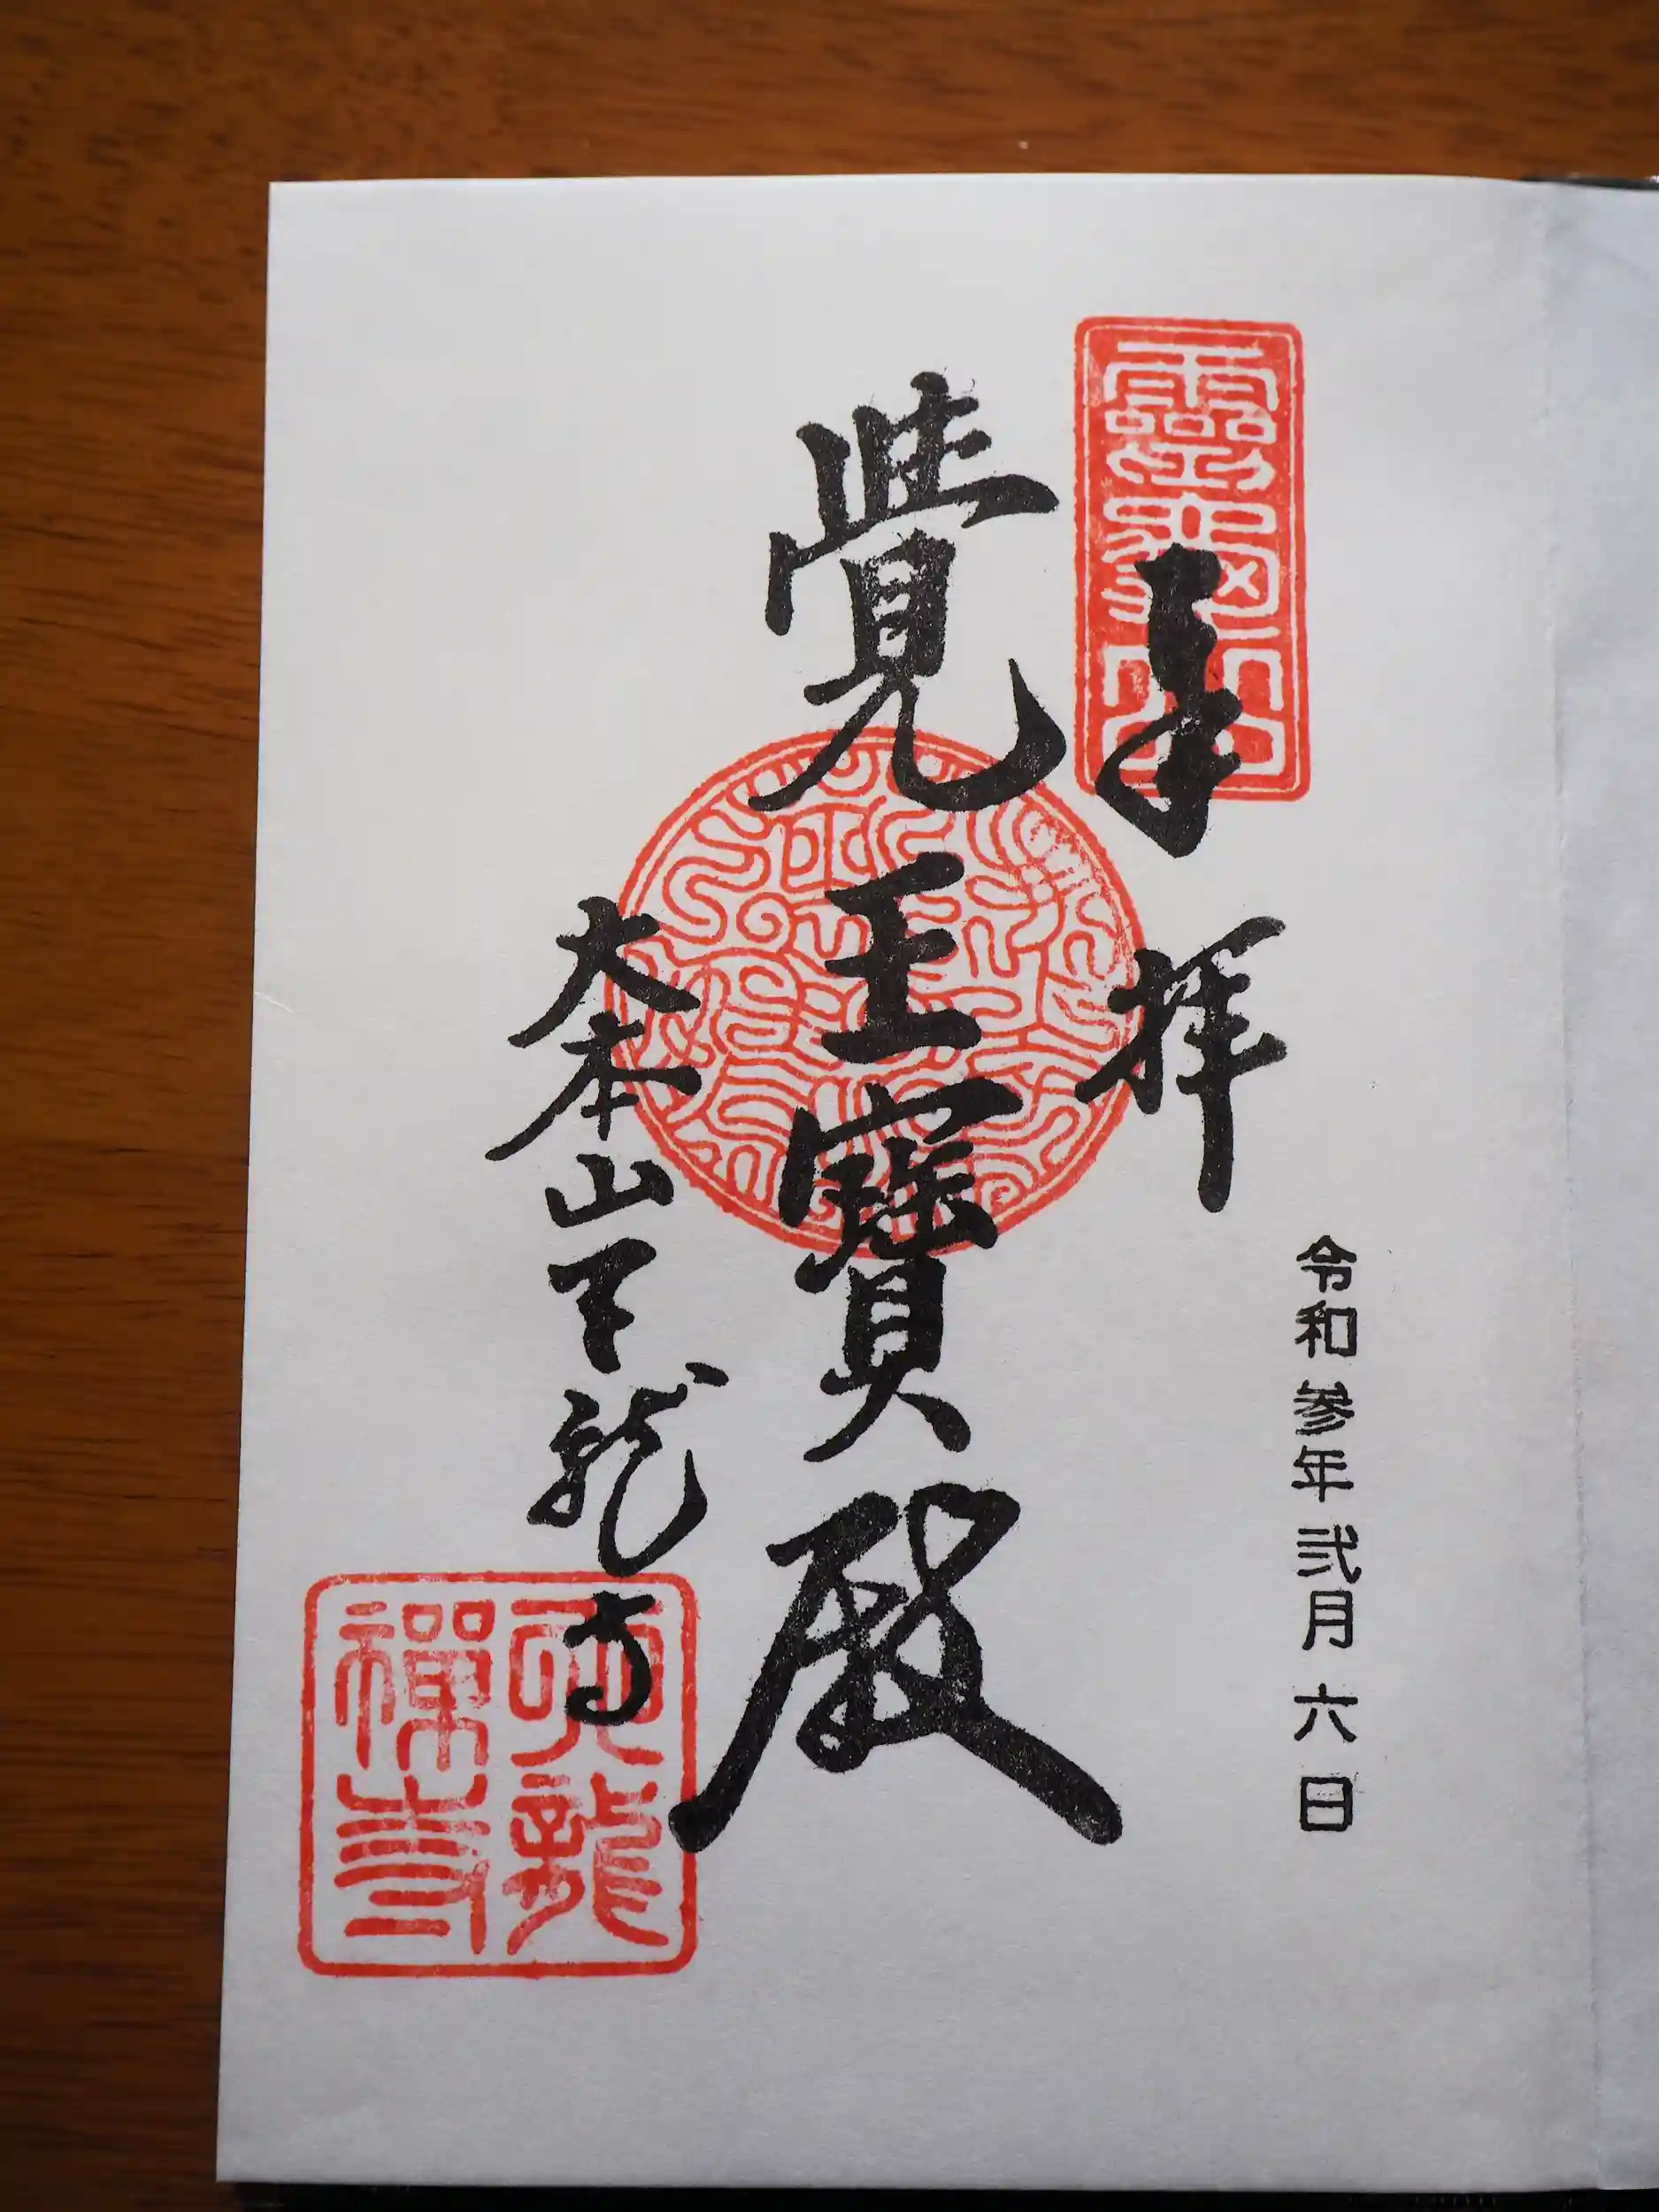 奉拝
令和参年弐月六日
覺王寶殿
大本山天龍寺
靈龜山
天龍
禅寺